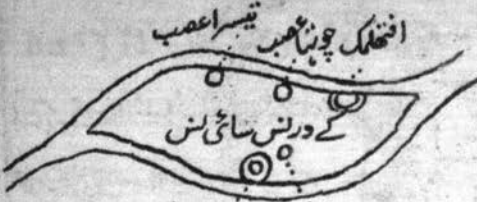 افتھلمک چوتھا عصب تیسرا عصب
کے ورنس سائی نس